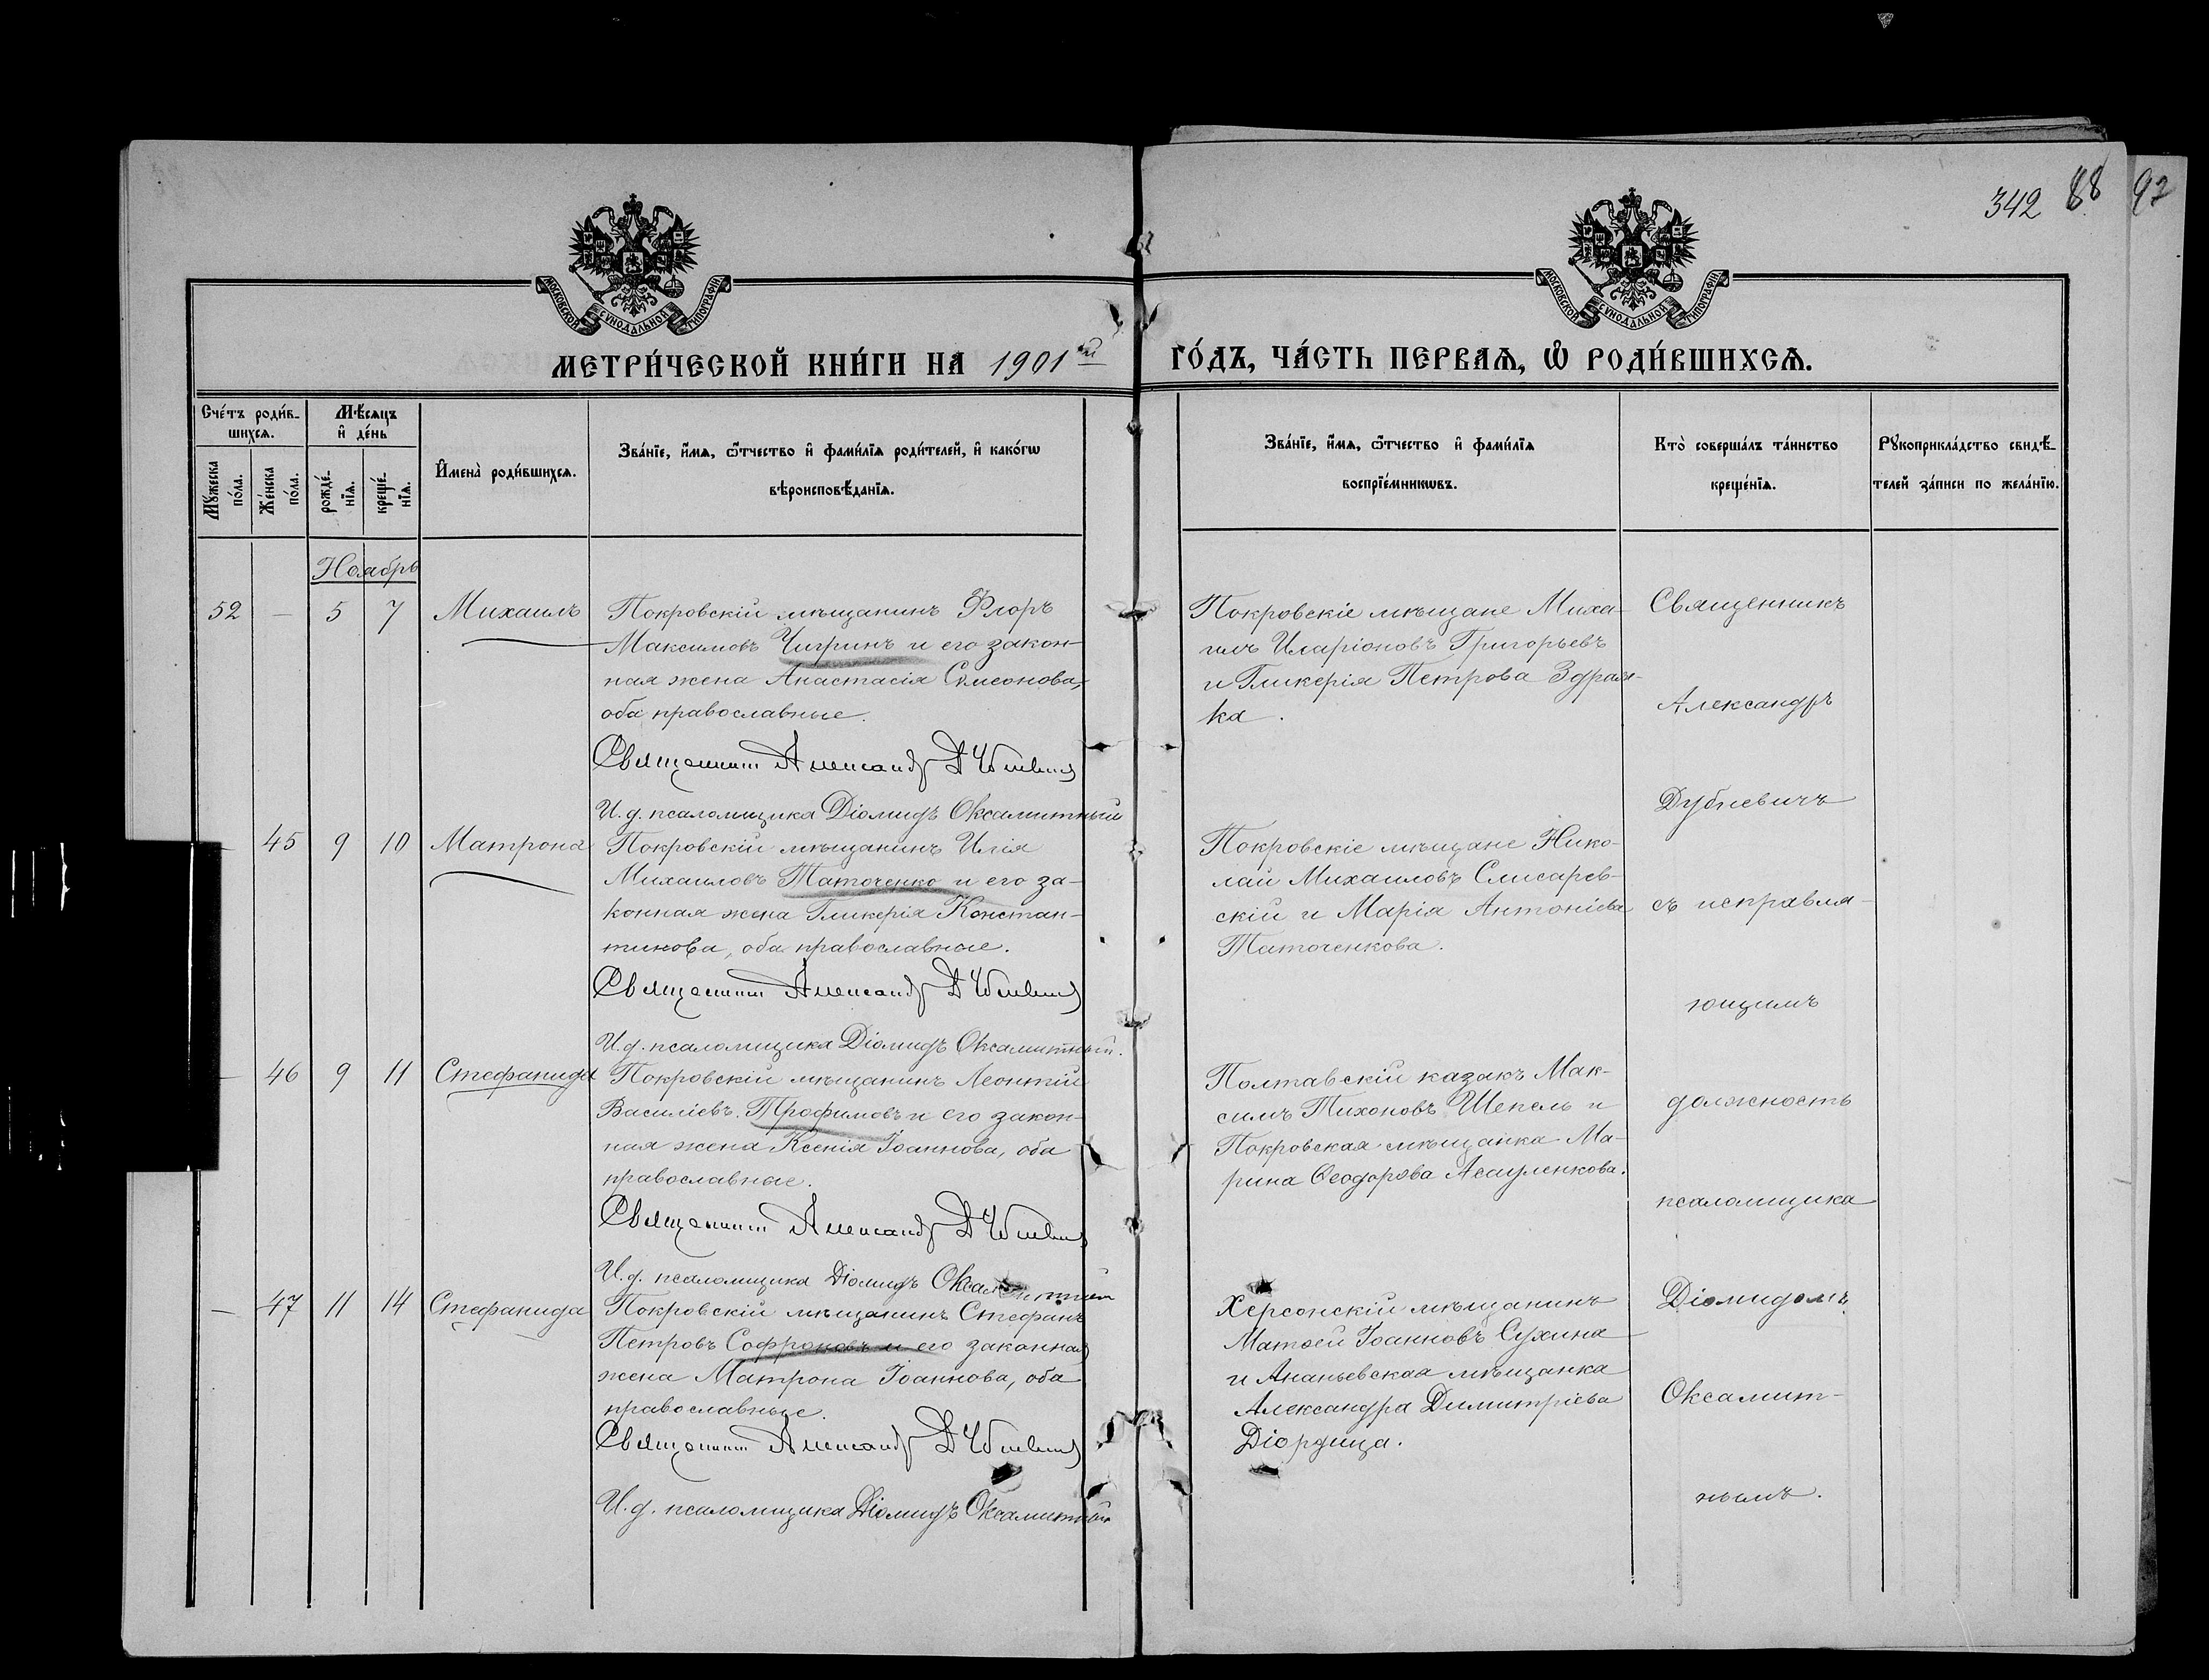 342 88 92
МОСКОВСКОЙ СУНОДАЛЬНОЙ ТИПОГРАФІИ
МОСКОВСКОЙ СУНОДАЛЬНОЙ ТИПОГРАФІИ
МЕТРИ́ЧЕСКОЙ КНИ́ГИ НА 1901ый ГО́ДЪ, ЧА́СТЬ ПЕРВАѦ, Ѡ҆ РОДИ́ВШИХСѦ.
Сче́тъ роди́в-
шихсѧ.
Мꙋ́жеска
по́ла.
Же́нска
по́ла.
Мѣ́сѧцъ
и҆ де́нь
рожде́-
нїѧ.
креще́-
нїѧ.
И҆мена̀ роди́вшихсѧ.
Зва́нїе, и҆́мѧ, ѻ҆́тчество и҆ фами́лїѧ роди́телей, и҆ како́гѡ
вѣроисповѣ́данїѧ.
Зва́нїе, и҆́мѧ, ѻ҆́тчество и҆ фами́лїѧ
воспрїе́мникѡвъ.
Кто̀ соверша́лъ та́инство
креще́нїѧ.
Рꙋкоприкла́дство свидѣ́-
телей за́писи по жела́нїю.
Ноябрь
52 — 5 7 Михаилъ
Покровскій мѣщанинъ Флоръ
Максимовъ Чигринъ и его закон-
ная жена Анастасія Самсонова,
оба православные.
Священникъ Александръ Дубневичъ
И. д. псаломщика Діомидъ Оксамитный
Покровскіе мѣщане Миха-
илъ Иларіоновъ Григорьевъ
и Гликерія Петрова Здраж-
ка.
— 45 9 10 Матрона
Покровскій мѣщанинъ Илія
Михаиловъ Таточенко и его за-
конная жена Гликерія Констан-
тинова, оба православные.
Священникъ Александръ Дубневичъ
И. д. псаломщика Діомидъ Оксамитный.
Покровскіе мѣщане Нико-
лай Михаиловъ Слисарев-
скій и Марія Антоніева
Таточенкова.
— 46 9 11 Стефанида
Покровскій мѣщанинъ Леонтій
Василіевъ Трофимовъ и его закон-
ная жена Ксенія Іоаннова, оба
православные.
Священникъ Александръ Дубневичъ
И. д. псаломщика Діомидъ Оксамитный
Полтавскій казакъ Мак-
симъ Тихоновъ Шепель и
Покровская мѣщанка Ма-
рина Ѳеодорова Асауленкова.
— 47 11 14 Стефанида
Покровскій мѣщанинъ Стефанъ
Петровъ Софроновъ и его законная
жена Матрона Іоаннова, оба
православные.
Священникъ Александръ Дубневичъ
И. д. псаломщика Діомидъ Оксамитный
Херсонскій мѣщанинъ
Матѳей Іоанновъ Сухина
и Ананьевская мѣщанка
Александра Димитріева
Діордица.
Священникъ
Александръ
Дубневичъ
съ исправля-
ющимъ
должность
псаломщика
Діомидомъ
Оксамит-
нымъ.